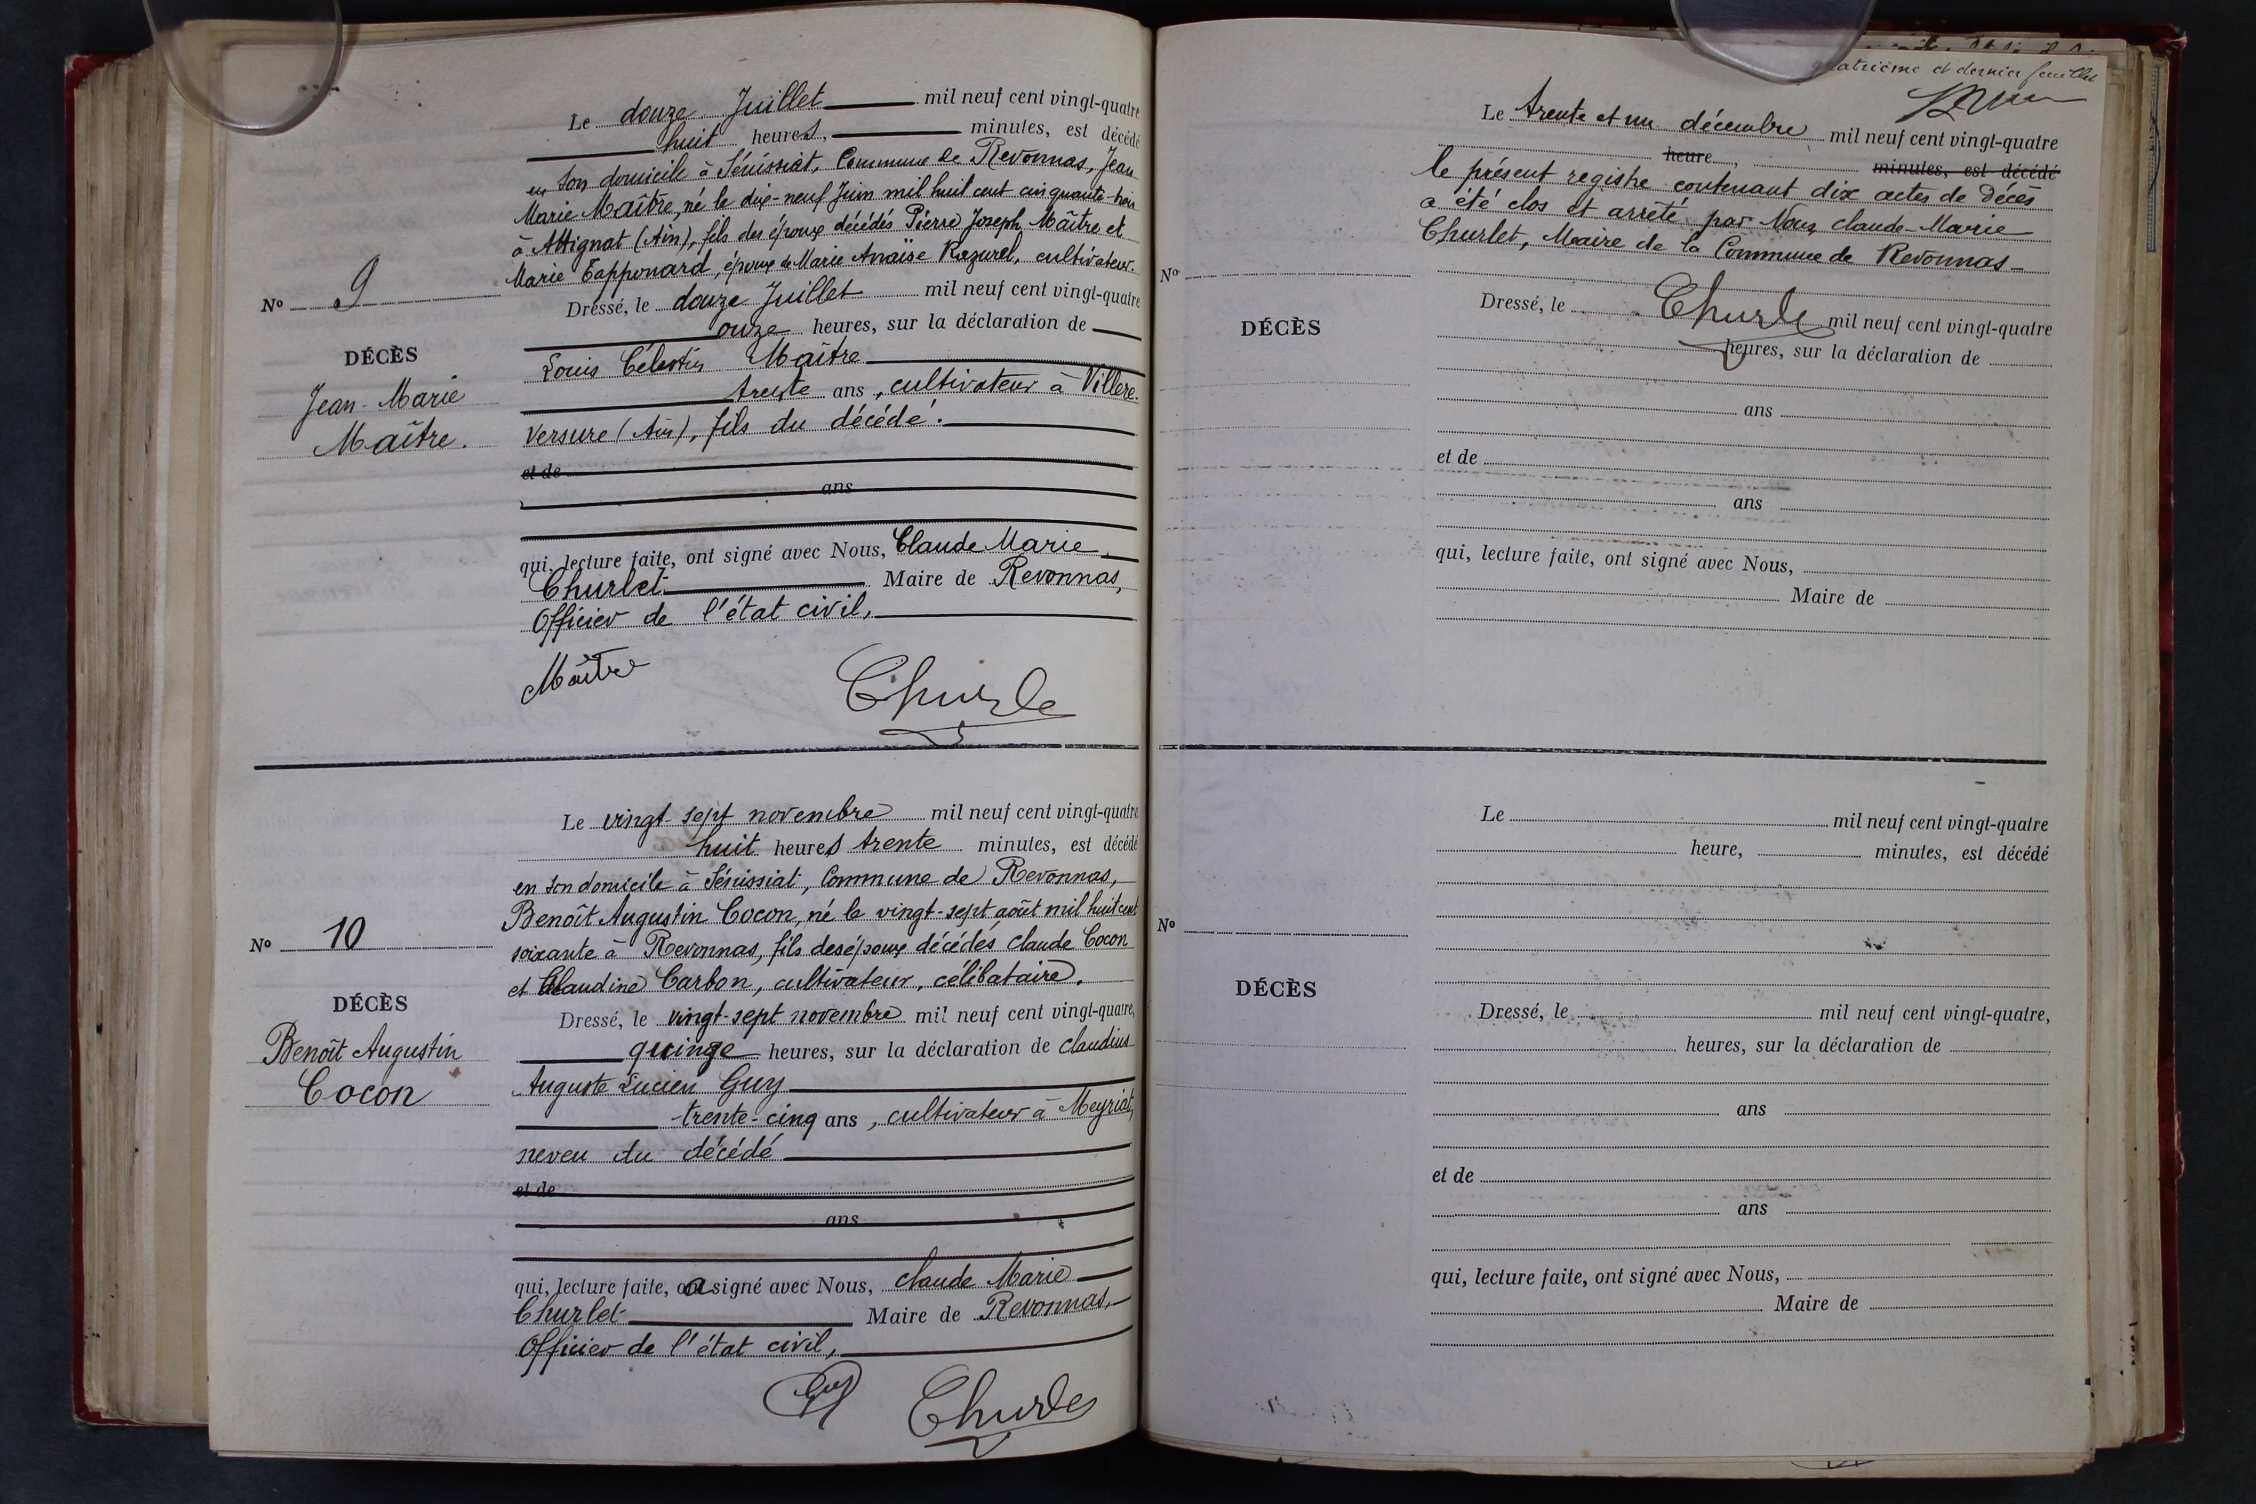 Le douze Juillet mil neuf cent vingt-quatre
huit heures, minutes, est décédé
en son domicile à Sénissiat, Commune de Revonnas, Jean
Marie Maître, né le dix-neuf Juin mil huit cent cinquante-trois
à Attignat (Ain), fils des époux décédés Pierre Joseph Maître et
Marie Tapponard, époux de Marie Anaïse Razurel, cultivateur.
Nº 9
DÉCÈS
Jean-Marie
Maître.
Dressé, le douze Juillet mil neuf cent vingt-quatre
onze heures, sur la déclaration de
Louis Célestin Maître
trente ans, cultivateur à Villere.
versure (Ain), fils du décédé.
et de
ans
qui, lecture faite, ont signé avec Nous, Claude Marie
Churlet Maire de Revonnas,
Officier de l'état civil,
Maître Churle
Le vingt-sept novembre mil neuf cent vingt-quatre
huit heures trente minutes, est décédé
en son domicile à Sénissiat, Commune de Revonnas,
Benoît Augustin Cocon, né le vingt-sept août mil huit cent
soixante à Revonnas, fils des époux décédés Claude Cocon
et Claudine Carbon, cultivateur, célibataire.
Nº 10
DÉCÈS
Benoît Augustin
Cocon
Dressé, le vingt-sept novembre mil neuf cent vingt-quatre,
quinze heures, sur la déclaration de Claudius
Auguste Lucien Guy
trente-cinq ans, cultivateur à Meyriat,
neveu du décédé
et de
ans
qui, lecture faite, a signé avec Nous, Claude Marie
Churlet Maire de Revonnas,
Officier de l'état civil,
Guy Churlet
quatrième et dernier feuillet
Le trente et un décembre mil neuf cent vingt-quatre
heure, minutes, est décédé
le présent registre contenant dix actes de décès
a été clos et arrêté par Nous, Claude-Marie
Churlet, Maire de la Commune de Revonnas
Nº
DÉCÈS
Dressé, le Churle mil neuf cent vingt-quatre
heures, sur la déclaration de
ans
et de
ans
qui, lecture faite, ont signé avec Nous,
Maire de
Le mil neuf cent vingt-quatre
heure, minutes, est décédé
Nº
DÉCÈS
Dressé, le mil neuf cent vingt-quatre,
heures, sur la déclaration de
ans
et de
ans
qui, lecture faite, ont signé avec Nous,
Maire de